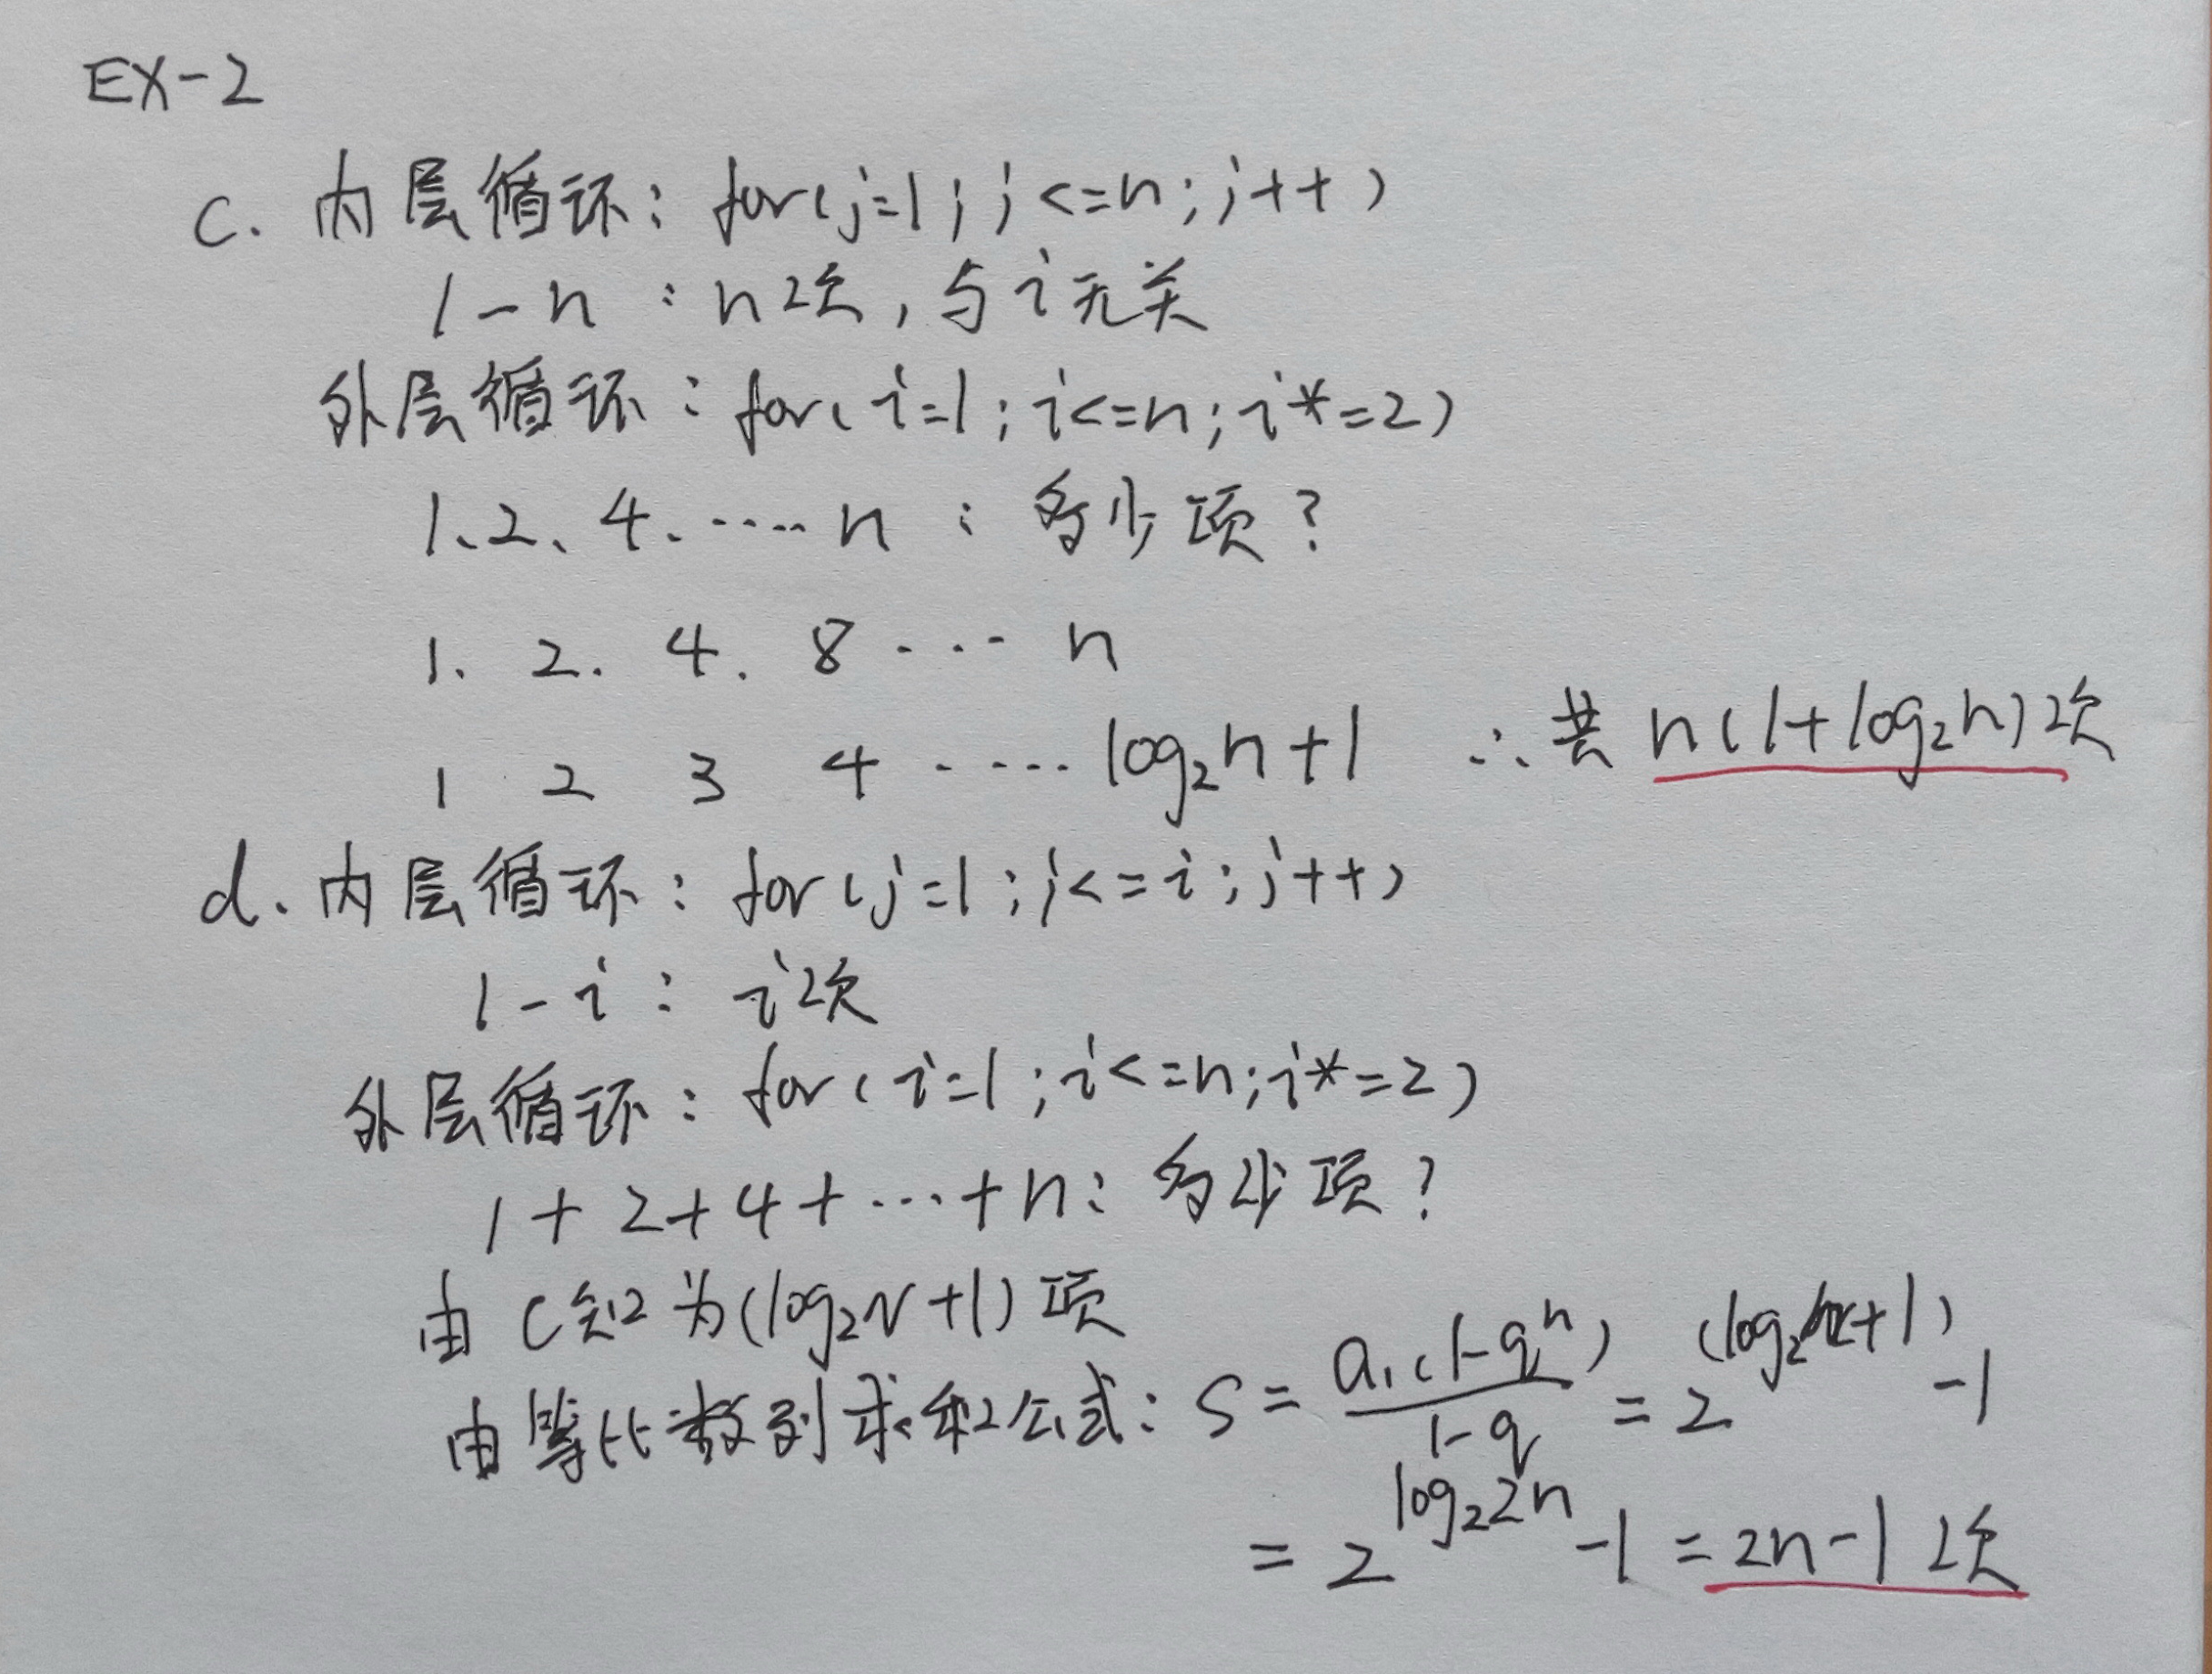 EX-2
c. 内层循环: for(j=1; j<=n; j++)
1-n : n次, 与i无关
外层循环: for(i=1; i<=n; i*=2)
1、2、4、…… n : 多少项?
1. 2. 4. 8 ... n
1 2 3 4 ..... log₂n+1 ∴共 n(1+log₂n)次
d. 内层循环: for(j=1; j<=i; j++)
1-i: i次
外层循环: for(i=1; i<=n; i*=2)
1+2+4+…+n: 多少项?
由C知为(log₂N+1)项
由等比数列求和公式: S = a₁(1-qⁿ)/(1-q) = 2^(log₂n+1) -1
= 2^log₂2n -1 = 2n-1次